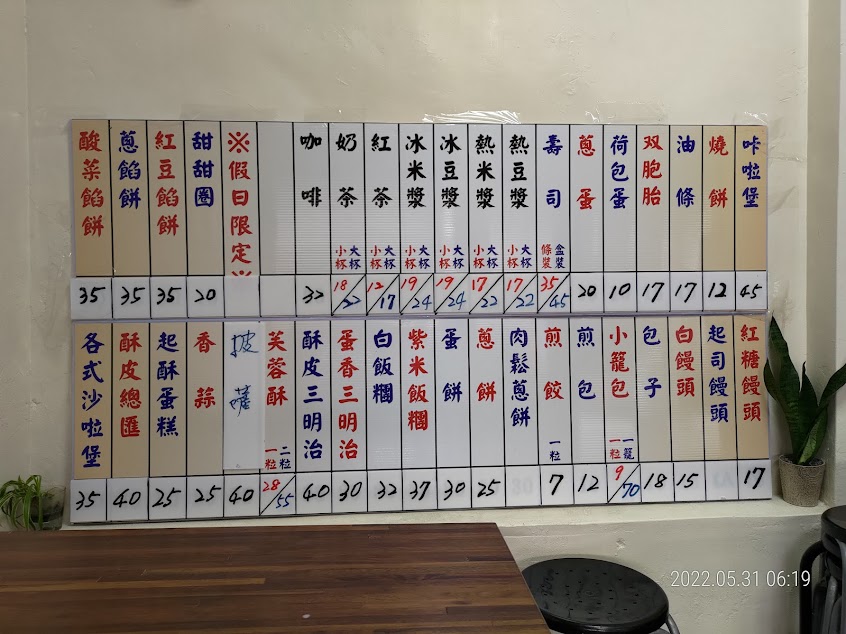 咔啦堡 45
燒餅 12
油條 17
双胞胎 17
荷包蛋 10
蔥蛋 20
壽司 盒裝 條裝 35/45
熱豆漿 大杯 小杯 17/22
熱米漿 大杯 小杯 17/22
冰豆漿 大杯 小杯 19/24
冰米漿 大杯 小杯 19/24
紅茶 大杯 小杯 12/17
奶茶 大杯 小杯 18/22
咖啡 32
※假日限定※
甜甜圈 20
紅豆餡餅 35
蔥餡餅 35
酸菜餡餅 35
紅糖饅頭 17
起司饅頭
白饅頭 15
包子 18
小籠包 一籠 一粒 9/70
煎包 12
煎餃 一粒 7
肉鬆蔥餅
蔥餅 25
蛋餅 30
紫米飯糰 37
白飯糰 32
蛋香三明治 30
酥皮三明治 40
芙蓉酥 二粒 一粒 28/55
披薩 40
香蒜 25
起酥蛋糕 25
酥皮總匯 40
各式沙啦堡 35
2022.05.31 06:19